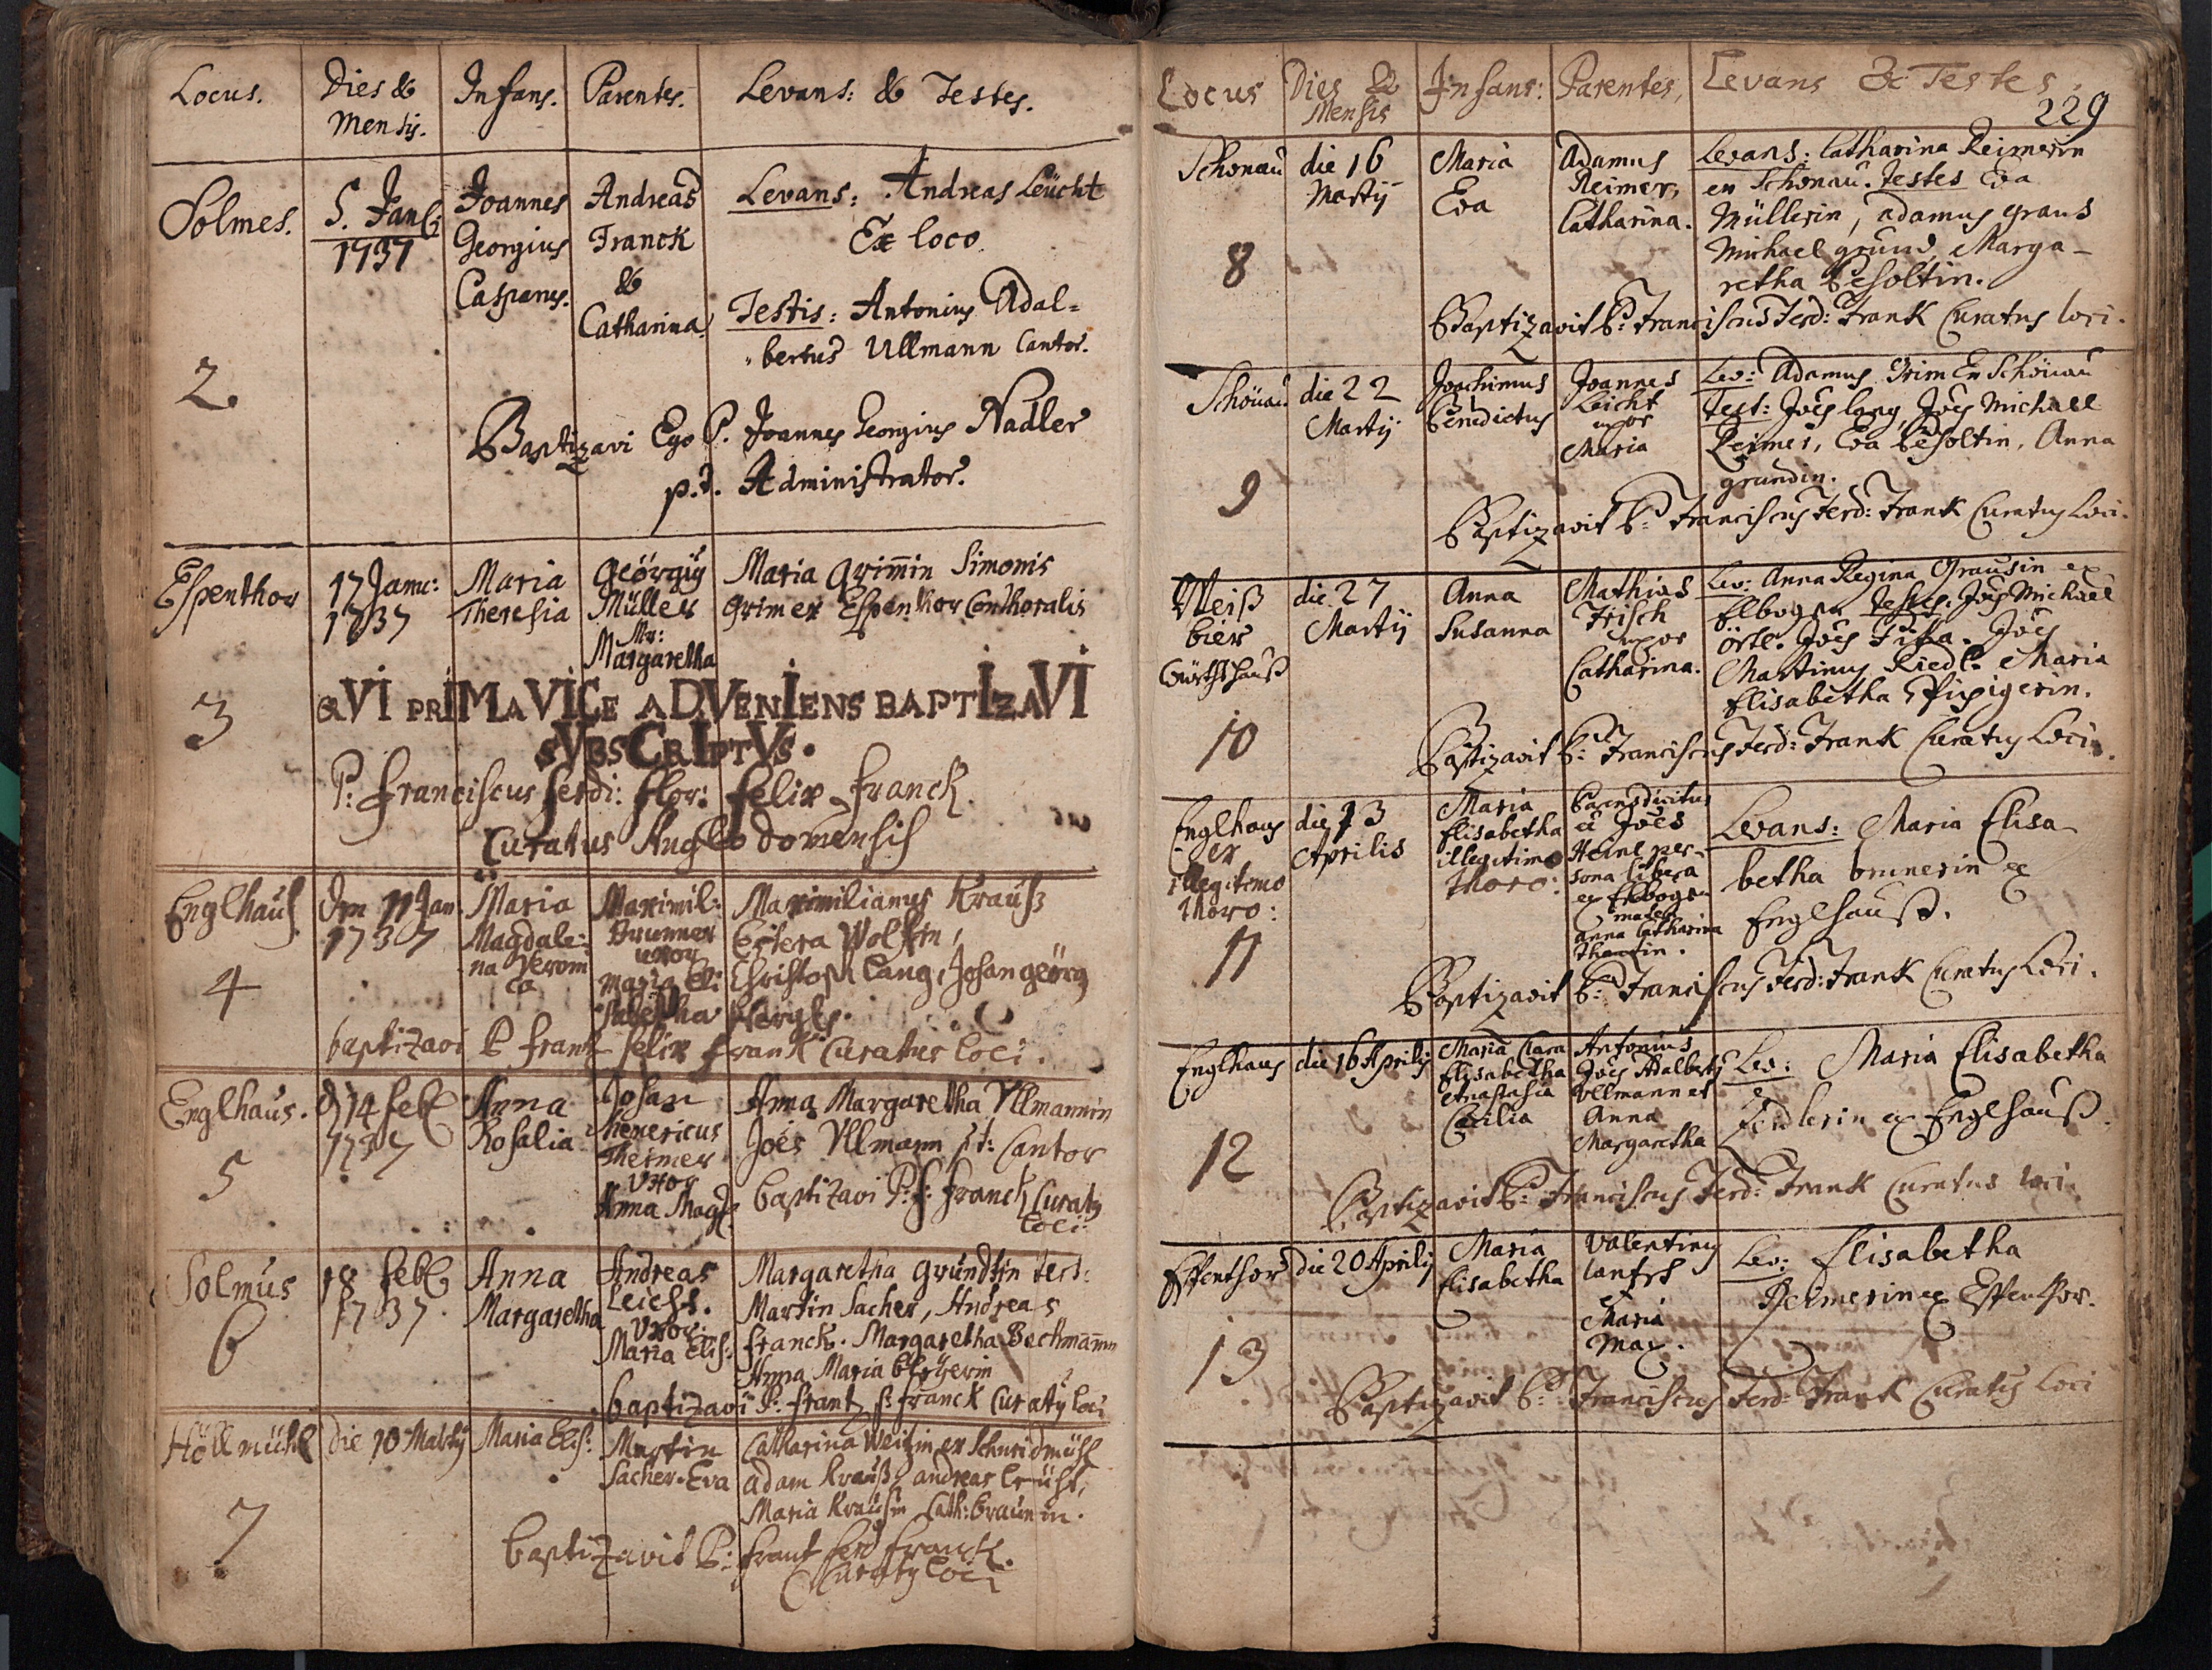 Locus.
Dies &
Mensis.
Infans.
Parentes.
Levans: & Testes.
Solmes.
2.
5. Janu:
1737
Joannes
Georgius
Casparus.
Andreas
Franck
&
Catharina.
Levans: Andreas Leücht
Ex loco.
Testis: Antonius Adal=
bertus Ullmann Cantor.
Baptizavi Ego P. Joannes Georgius Nadler
p.t. Administrator.
Espenthor
3
17 Janu:
1737
Maria
Theresia
Geörgiy
Müller
Mr:
Margaretha
Maria Grim̄in Simonis
Grim ex Espenthor Conthoralis
QVI PRIMA VICE ADVENIENS BAPTIZAVI
SVBSCRIPTVS.
P: Franciscus Ferdi: Flor: Felix Franck.
Curatus Anglo domensis
Englhauß
4
Jan
1737
Maria
Magdale:
na Veroni
ca
Maximil:
Brunner
uxor
Maria Eli
sabetha
Maximilianus Krauß
Estera Wolfin,
Christoph Lang, Johan geörg
baptizavi P frantz felix frank Curatus loci.
Englhaus.
5
d 14 feb
1737
Anna
Rosalia
Johan
Henericus
Theimer
Vxor
Anna Magd.
Anna Margaretha Vllmannin
Joēs Vllmann pt: Cantor
baptizavi P: F: Franck Curaty
loci:
Solmus
6
18 feb
1737.
Anna
Margaretha
Andreas
Leicht.
Vxor.
Maria Elis:
Margaretha Grundtin test:
Martin Sacher, Andreas
franck. Margaretha Bechmann̄in
Anna Maria
baptizavi P. frantz f: franck Curaty loci
Höllmühl
7
die 10 Martÿ
Maria Elis:
Martin
Sacher. Eva
Catharina Weitzin ex Schmidmühl
Adam Krauß, andreas
Maria Kraüsin Cath: braunin.
baptizavit P: frant ferd franck.
Curaty loci
Locus
Dies &
Mensis
Infans:
Parentes,
Levans & Testes,
229
Schonau
8
die 16
Martÿ
Maria
Eva
Adamus
Reimer,
Catharina.
Levans: Catharina Reimerin
ex Schonau. Testes Eva
Müllerin, Adamus Graus
Michael Grund, Marga-
retha Pesoltin.
Baptizavit P: Franciscus Ferd: Frank Curatus loci.
Schönau
9
die 22
Martÿ
Joachimus
Benedictus
Joannes
Leicht
uxor
Maria
Lev: Adamus Grim Ex Schönau
Test: Joēs lang, Joēs Michael
Reimer, Eva Pesoltin, Anna
grundin.
Baptizavit P: Franciscus Ferd: Frank Curatus Loci.
Weiß
bier
Würthshauß
10
die 27
Martÿ
Anna
Susanna
Mathias
Frisch
uxor
Catharina.
Lev: Anna Regina Grausin ex
Elbogen Testes: Joēs Michael
örtl. Joēs Joēs
Martinus Riedl. Maria
Elisabetha
Baptizavit P: Franciscus Ferd: Frank Curatus Loci.
Englhaus
ex
illegitimo
thoro:
11
die 13
Aprilis
Maria
Elisabetha
illegitimo
thoro:
à Joēs
per-
sona libera
ex Elbogen
mater
Anna Catharina
Levans: Maria Elisa-
betha ex
Englhauß.
Baptizavit P: Franciscus Ferd: Frank Curatus Loci.
Englhaus
12
die 16 Aprilis
Maria Clara
Elisabetha
Anastasia
Cæcilia
Antonius
Joēs Adalbertus
Ullmann et
Anna
Margaretha
Lev: Maria Elisabetha
ex Englhauß.
Baptizavit P: Franciscus Ferd: Frank Curatus loci.
Espenthor
13
die 20 Aprilis
Maria
Elisabetha
Valentinus
et
Maria
Lev: Elisabetha
Reimerin ex Espenthor.
Baptizavit P: Franciscus Ferd: Frank Curatus Loci